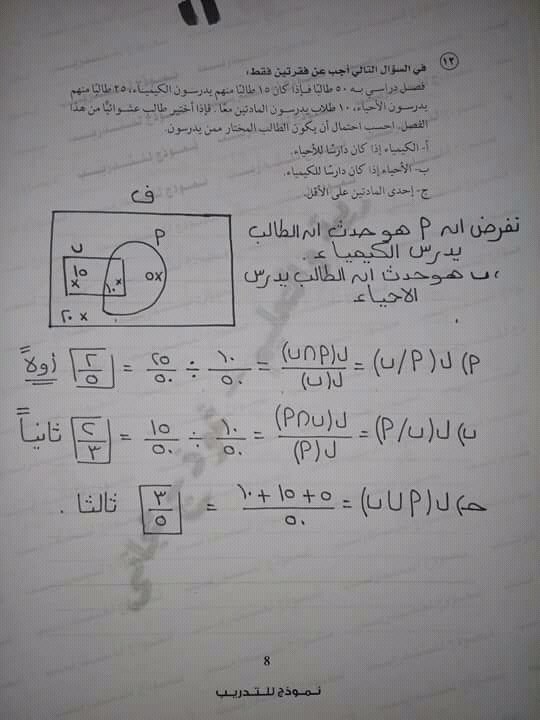 ١٢
في السؤال التالي أجب عن فقرتين فقط:
فصل دراسي به ٥٠ طالبًا فإذا كان ١٥ طالبًا منهم يدرسون الكيمياء، ٢٥ طالبًا منهم
يدرسون الأحياء، ١٠ طلاب يدرسون المادتين معًا. فإذا أختير طالب عشوائيًا من هذا
الفصل. احسب احتمال أن يكون الطالب المختار ممن يدرسون.
أ- الكيمياء إذا كان دارسًا للأحياء.
ب- الأحياء إذا كان دارسًا للكيمياء.
ج- إحدى المادتين على الأقل.
ف
ب
P
١٥ x
١٠ x
٥ x
٢٠ x
نفرض انه P هو حدث انه الطالب
يدرس الكيمياء.
، ب هو حدث انه الطالب يدرس
الاحياء
P) ل(P/ب) = ل(P∩ب)/ل(ب) = ١٠/٥٠ ÷ ٢٥/٥٠ = ٢/٥ أولاً
ب) ل(ب/P) = ل(ب∩P)/ل(P) = ١٠/٥٠ ÷ ١٥/٥٠ = ٢/٣ ثانياً
حـ) ل(P∪ب) = ٥+١٥+١٠/٥٠ = ٣/٥ ثالثا .
8
نموذج للتدريب